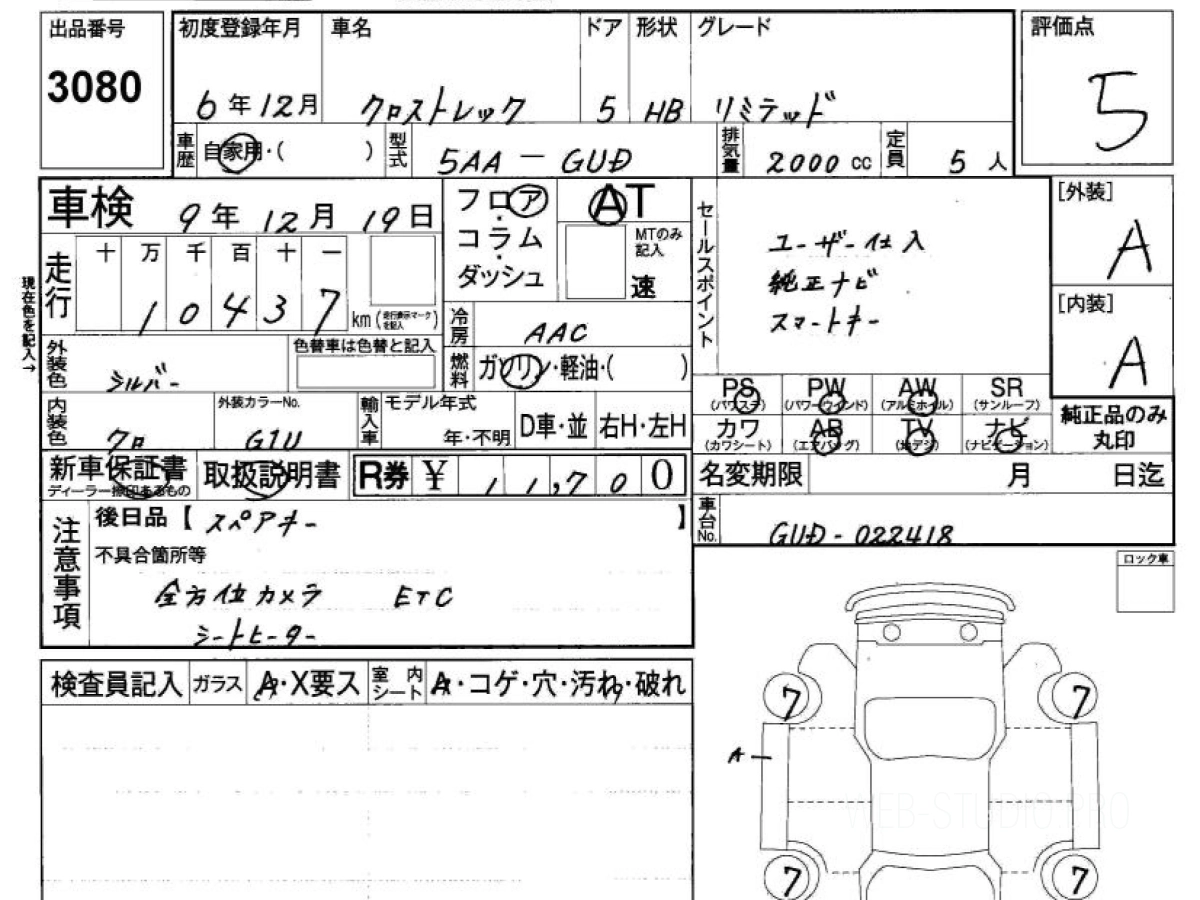 出品番号
3080
初度登録年月 車名 ドア 形状 グレード
6年12月 クロストレック 5 HB リミテッド
車歴 自家用・( ) 型式 5AA-GUD 排気量 2000cc 定員 5人
評価点
5
車検 9年12月19日
フロア・コラム・ダッシュ
AT
MTのみ記入
速
セールスポイント
ユーザー仕入
純正ナビ
スマートキー
[外装]
A
[内装]
A
現在色を記入→
走行 十 万 千 百 十 一
1 0 4 3 7 km (走行表示マークを記入)
冷房 AAC
外装色 シルバー 色替車は色替と記入
燃料 ガソリン・軽油・( )
内装色 クロ 外装カラーNo. G1U
輸入車 モデル年式 年・不明 D車・並 右H・左H
PS (パワステ) PW (パワーウィンド) AW (アルミホイル) SR (サンルーフ)
カワ (カワシート) AB (エアバッグ) TV (地デジ) ナビ (ナビゲーション)
純正品のみ丸印
新車保証書 ディーラー捺印あるもの 取扱説明書 R券 ¥ 1 1,7 0 0
名変期限 月 日迄
車台No. GUD-022418
注意事項
後日品【 スペアキー 】
不具合箇所等
全方位カメラ ETC
シートヒーター
ロック車
検査員記入 ガラス A・X要ス 室内シート A・コゲ・穴・汚れ・破れ
7 7
A
WEB-STUDIO.PRO
7 7